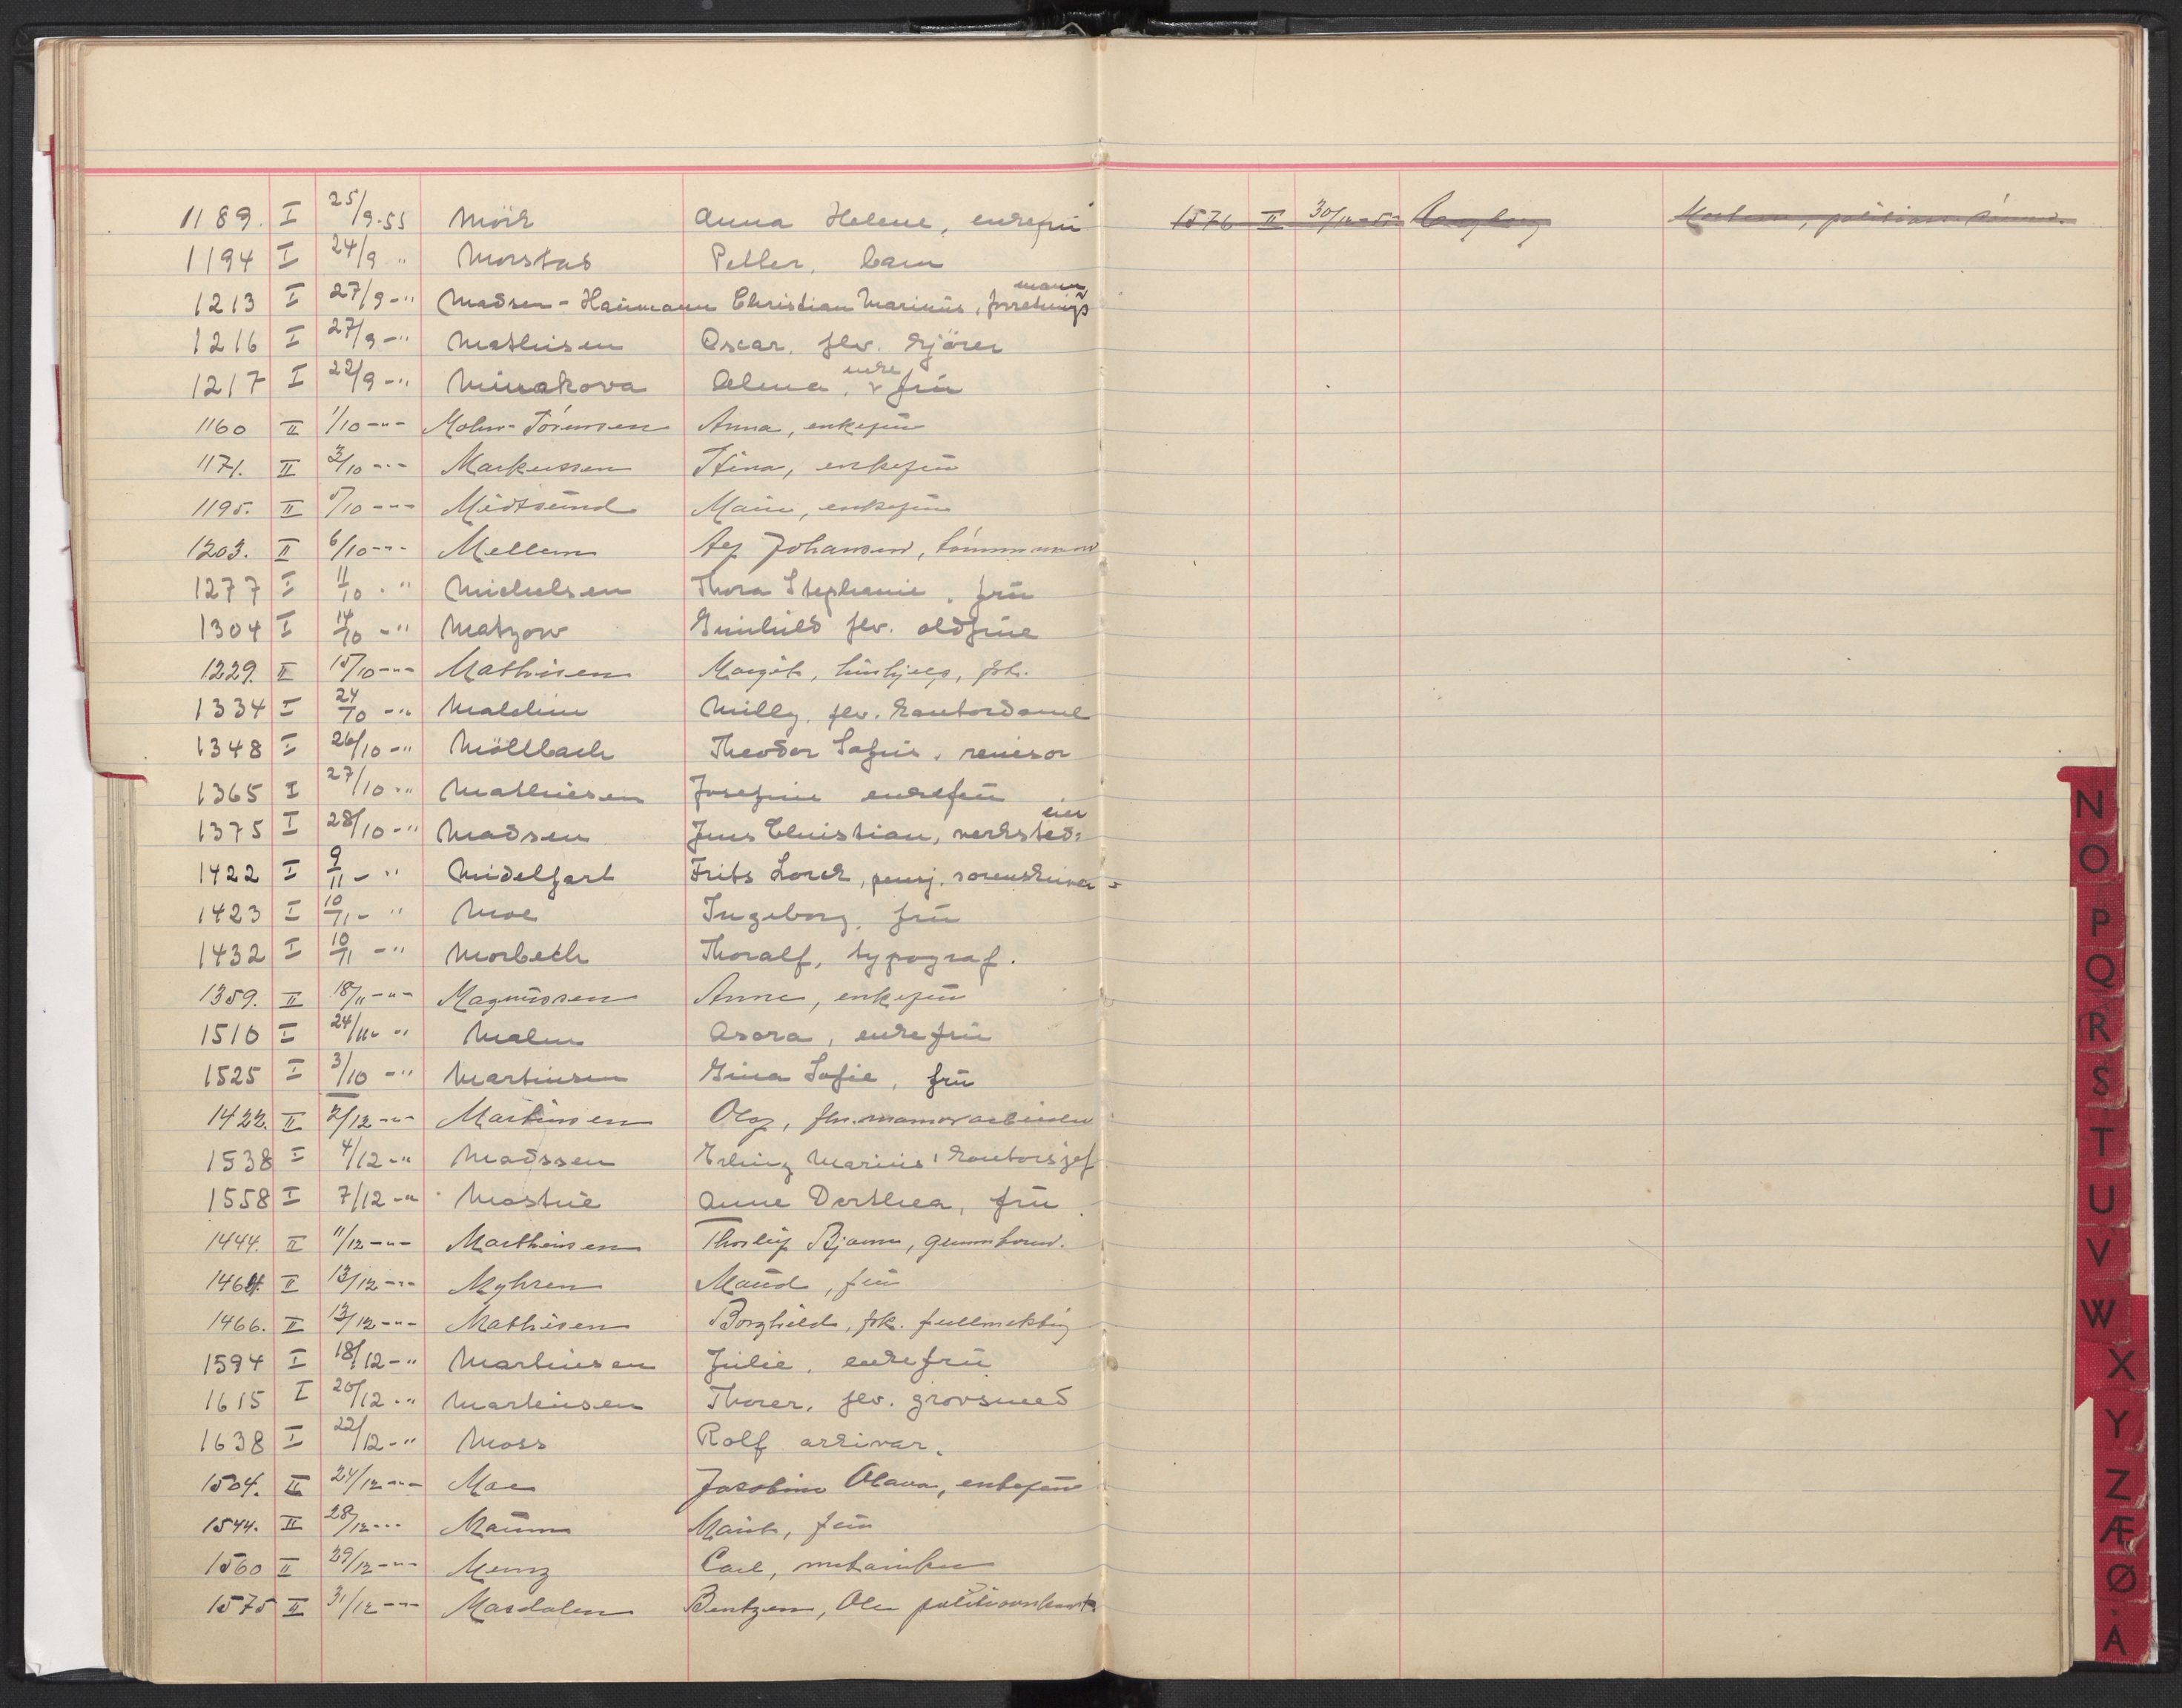 1189. I 25/9-55 Mörk Anna Helene, enkefrü
1194 I 24/9 " Morstad Petter, barn
1213 I 27/9-" Madsen-Haümann Christian Mariüs, forretnings mann
1216 I 27/9-" Mathisen Oscar, flv. kjörer
1217 I 22/9-" Minakova Alma, enke frü
1160 II 1/10-"- Mohn-Törmosen Anna, enkefrü
1171. II 3/10-"- Markussen Stina, enkefrü
1195. II 5/10-"- Midtsünd Marie, enkefrü
1203. II 6/10-"- Mellem Alf Johansen, tömmermann
1277 I 11/10-" Michelsen Thora Stephanie, frü
1304 I 14/10-" Matzow Günhild flv. oldfrüe
1229. II 15/10-"- Mathisen Margit, hüshjelp, frk.
1334 I 24/10-" Milly, flv. kontordame
1348 I 26/10-" Möllbach Theodor Sofüs, revisor
1365 I 27/10-" Mathiesen Josefine enkefrü
1375 I 28/10-" Madsen Jens Christian, verksted= eier
1422 I 9/11-" Midelfart Frits Lorck, pensj. sorenskriver
1423 I 10/11-" Moe Ingeborg, frü
1432 I 10/11-" Morbeth Thoralf, typograf.
1359. II 18/11-"- Magnüssen Anne, enkefrü
1510 I 24/11-" Malm Asora, enkefrü
1525 I 3/10-" Martinsen Gina Sofie, frü
1422. II 2/12-"- Martinsen Olaf, flv. marmorarbeider
1538 I 4/12-" Madssen Erling Mariüs, kontorsjef
1558 I 7/12-" Mostüe Anne Dorthea, frü
1444. II 11/12-"- Marthinsen Thorleif Bjarne,
1464. II 13/12-"- Myhren Maüd, frü
1466. II 13/12-"- Mathisen Borghild, frk. fullmektig
1594 I 18/12-" Martinsen Jülie, enkefrü
1615 I 20/12-" Martinsen Thorer, flv. grovsmed
1638 I 22/12-" Moss Rolf arkivar.
1504. II 24/12-"- Moe Jacobine Olava, enkefrü
1544. II 28/12-"- Maüm Marit, frü
1560 II 29/12-"- Menz Carl, mekaniker
1575 II 31/12-"- Mardalen Bentzen, Ole politioverkonst.
1576 II 30/12-55
N
O
P
Q
R
S
T
U
V
W
X
Y
Z
Æ
Ø
Å